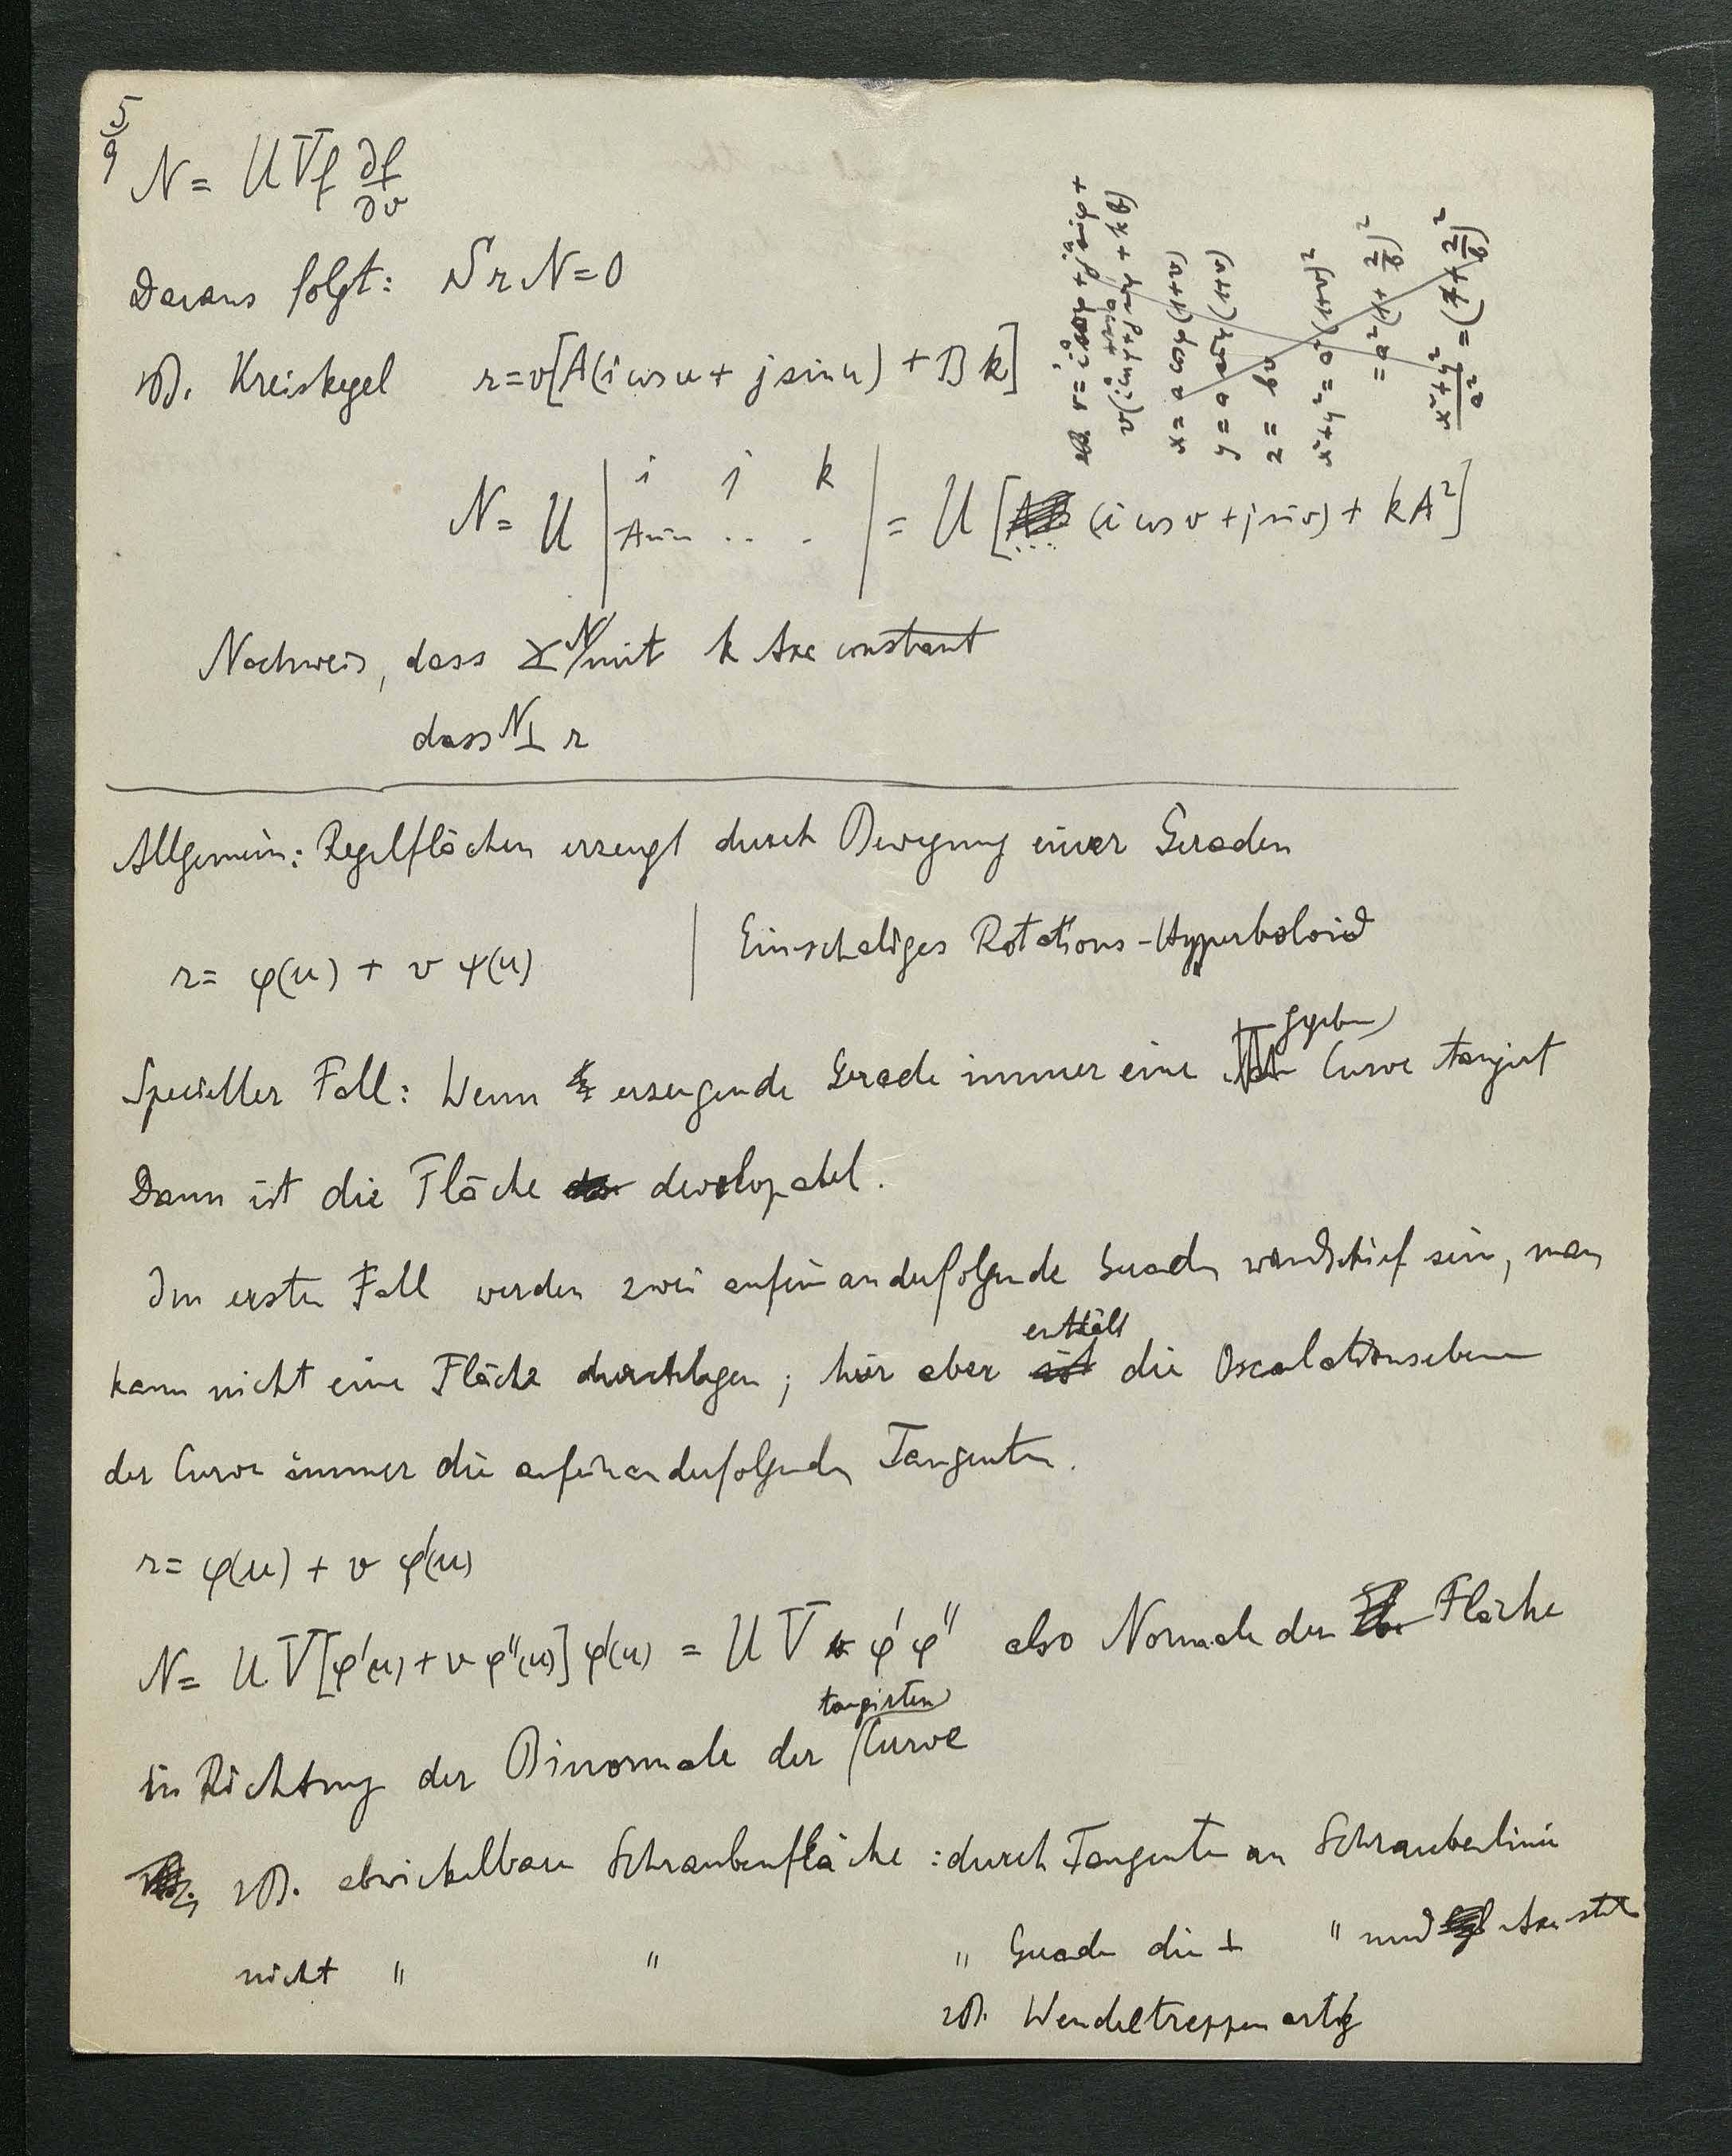 5/9
N = U V f ∂f/∂v
Daraus folgt: S r N = 0
zB. Kreiskegel r = v[A(i cos u + j sin u) + B k]
x = a cos φ (1+v)
y = a sin φ (1+v)
z = b v
x² + y² = a² (1+v)²
= a² (1 + z/b)²
(x² + y²)/a² = (1 + z/b)²
N = U | i j k | = U [ (i cos v + j sin v) + k A²]
A sin .. .
Nachweis, dass ∠ N mit k Axe constant
dass N ⊥ r
Allgemein: Regelflächen erzeugt durch Bewegung einer Geraden
r = φ(u) + v ψ(u) | Einschaliges Rotations-Hyperboloid
Specieller Fall: Wenn erzeugende Gerade immer eine gegeben Curve tangirt
Dann ist die Fläche developabel.
Im ersten Fall werden zwei aufeinanderfolgende Geraden windschief sein, man
kann nicht eine Fläche durchlegen; hier aber enthält die Osculationsebene
der Curve immer die aufeinanderfolgenden Tangenten.
r = φ(u) + v φ'(u)
N = U V[φ'(u) + v φ''(u)] φ'(u) = U V φ' φ'' also Normale der Fläche
in Richtung der Binormale der tangirten Curve
zB. abwickelbare Schraubenfläche : durch Tangenten an Schraubenlinie
nicht " " " Gerade die ⊥ " und Axe steht
zB. Wendeltreppenartig